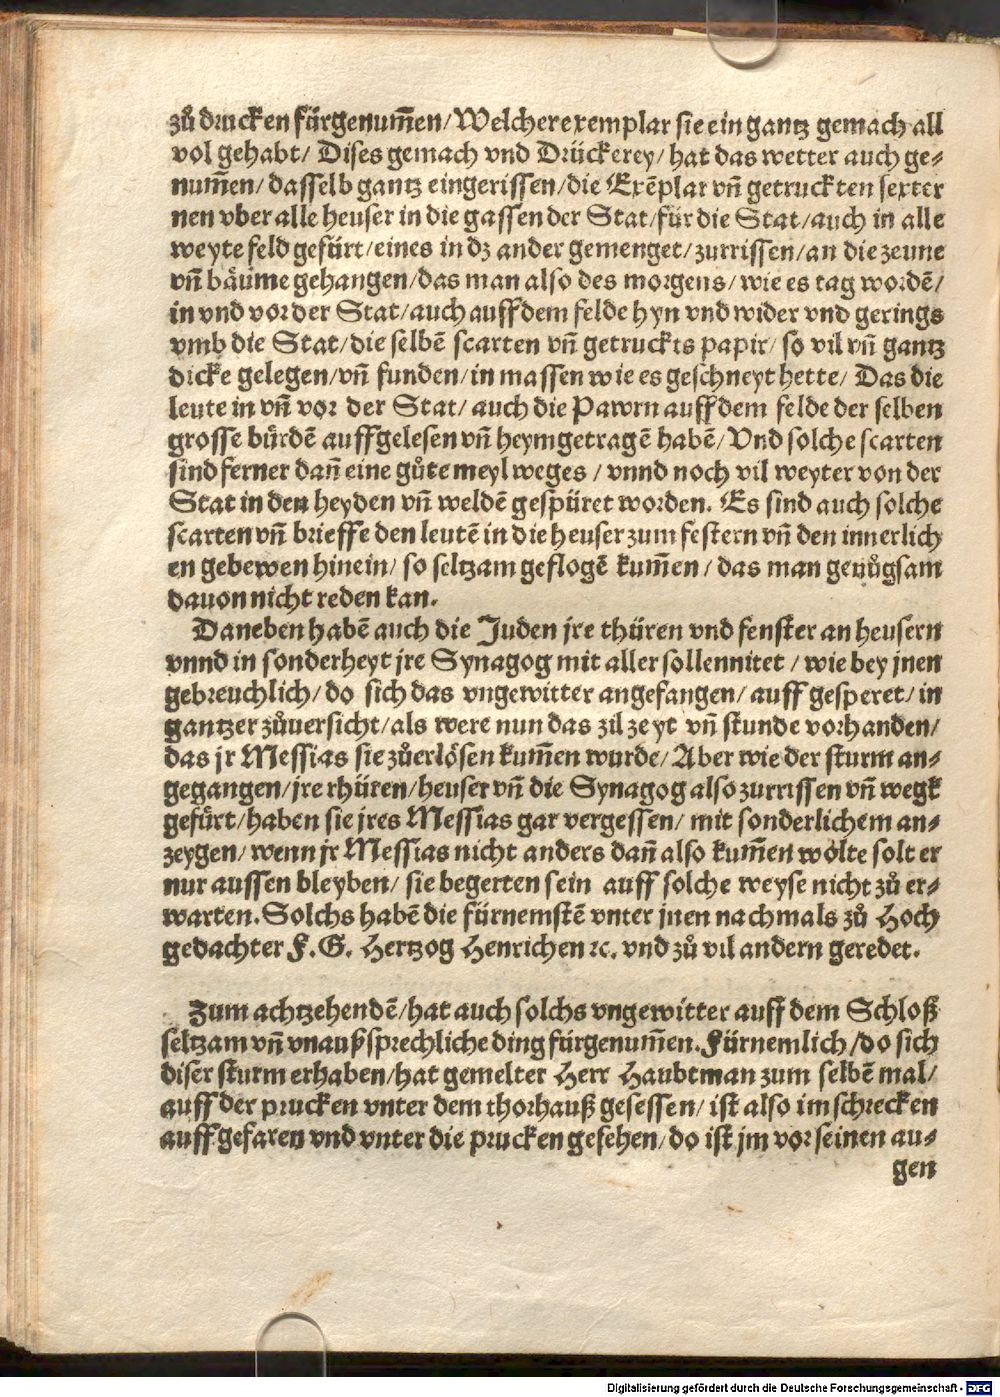 zů drucken fürgenum̃en/ Welcher exemplar sie ein gantz gemach all
vol gehabt/ Dises gemach vnd Drückerey/ hat das wetter auch ge-
num̃en/ dasselb gantz eingerissen/ die Exẽplar vñ getruckten sexter
nen vber alle heuser in die gassen der Stat/ für die Stat/ auch in alle
weyte feld gefürt/ eines in dz ander gemenget/ zurrissen/ an die zeune
vñ bäume gehangen/ das man also des morgens/ wie es tag wordẽ/
in vnd vor der Stat/ auch auff dem felde hyn vnd wider vnd gerings
vmb die Stat/ die selbẽ scarten vñ getruckts papir/ so vil vñ gantz
dicke gelegen/ vñ funden/ in massen wie es geschneyt hette/ Das die
leute in vñ vor der Stat/ auch die Pawrn auff dem felde der selben
grosse bürdẽ auffgelesen vñ heymgetragẽ habẽ/ Vnd solche scarten
sind ferner dañ eine gůte meyl weges / vnnd noch vil weyter von der
Stat in den heyden vñ weldẽ gespüret worden. Es sind auch solche
scarten vñ brieffe den leutẽ in die heuser zum festern vñ den innerlich
en gebewen hinein/ so seltzam geflogẽ kum̃en / das man genůgsam
dauon nicht reden kan.
Daneben habẽ auch die Juden jre thüren vnd fenster an heusern
vnnd in sonderheyt jre Synagog mit aller sollennitet / wie bey jnen
gebreuchlich/ do sich das vngewitter angefangen/ auff gesperet/ in
gantzer zůuersicht/ als were nun das zil zeyt vñ stunde vorhanden/
das jr Messias sie zůerlösen kum̃en wurde/ Aber wie der sturm an-
gegangen/ jre thüren/ heuser vñ die Synagog also zurrissen vñ wegk
gefürt/ haben sie jres Messias gar vergessen/ mit sonderlichem an-
zeygen/ wenn jr Messias nicht anders dañ also kum̃en wölte solt er
nur aussen bleyben/ sie begerten sein auff solche weyse nicht zů er-
warten. Solchs habẽ die fürnemstẽ vnter jnen nachmals zů Hoch
gedachter F. G. Hertzog Henrichen ꝛc. vnd zů vil andern geredet.
Zum achtzehendẽ/ hat auch solchs vngewitter auff dem Schloß
seltzam vñ vnaußsprechliche ding fürgenum̃en. Fürnemlich / do sich
diser sturm erhaben/ hat gemelter Herr Haubtman zum selbẽ mal/
auff der prucken vnter dem thorhauß gesessen/ ist also im schrecken
auffgefaren vnd vnter die prucken gesehen/ do ist jm vor seinen au-
gen
Digitalisierung gefördert durch die Deutsche Forschungsgemeinschaft - DFG